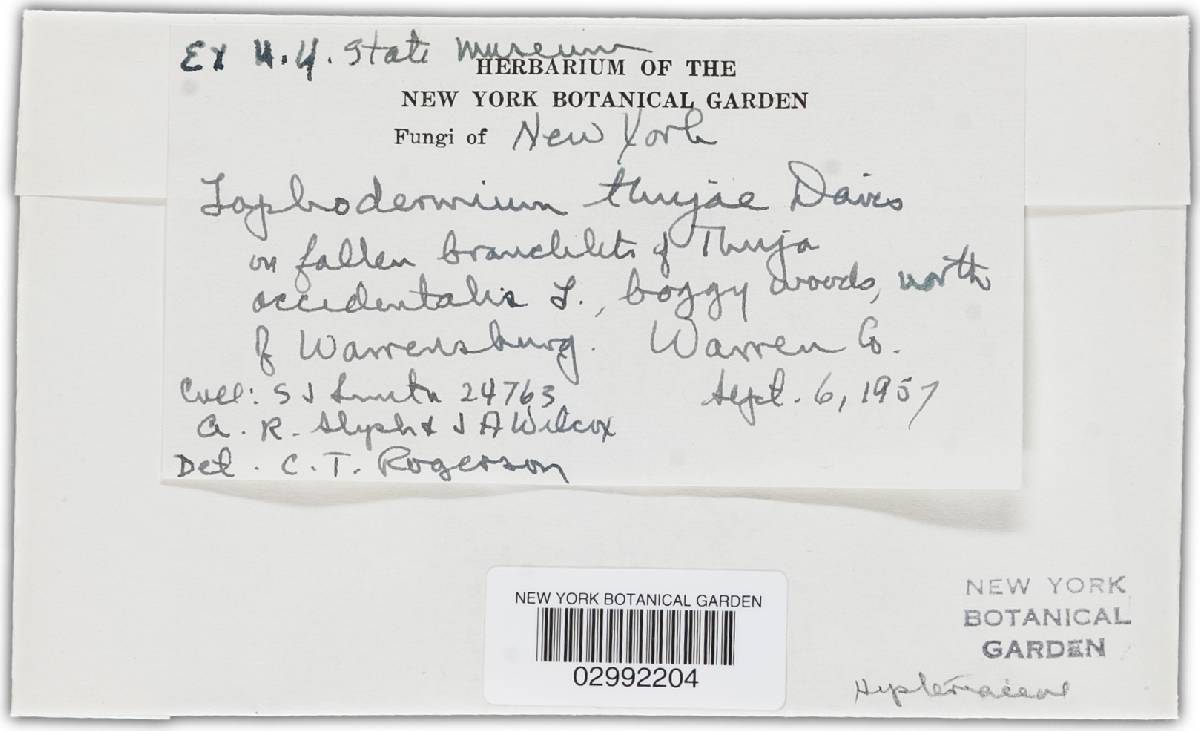 Ex N.Y. State Museum
HERBARIUM OF THE
NEW YORK BOTANICAL GARDEN
Fungi of New York
Lophodermium thujae Davis
on fallen branchlets of Thuja
occidentalis L., boggy woods, north
of Warrensburg. Warren Co.
Coll: S J Smith 24763 Sept. 6, 1957
A. R. & J A Wilcox
Det. C. T. Rogerson
NEW YORK BOTANICAL GARDEN
02992204
NEW YORK
BOTANICAL
GARDEN